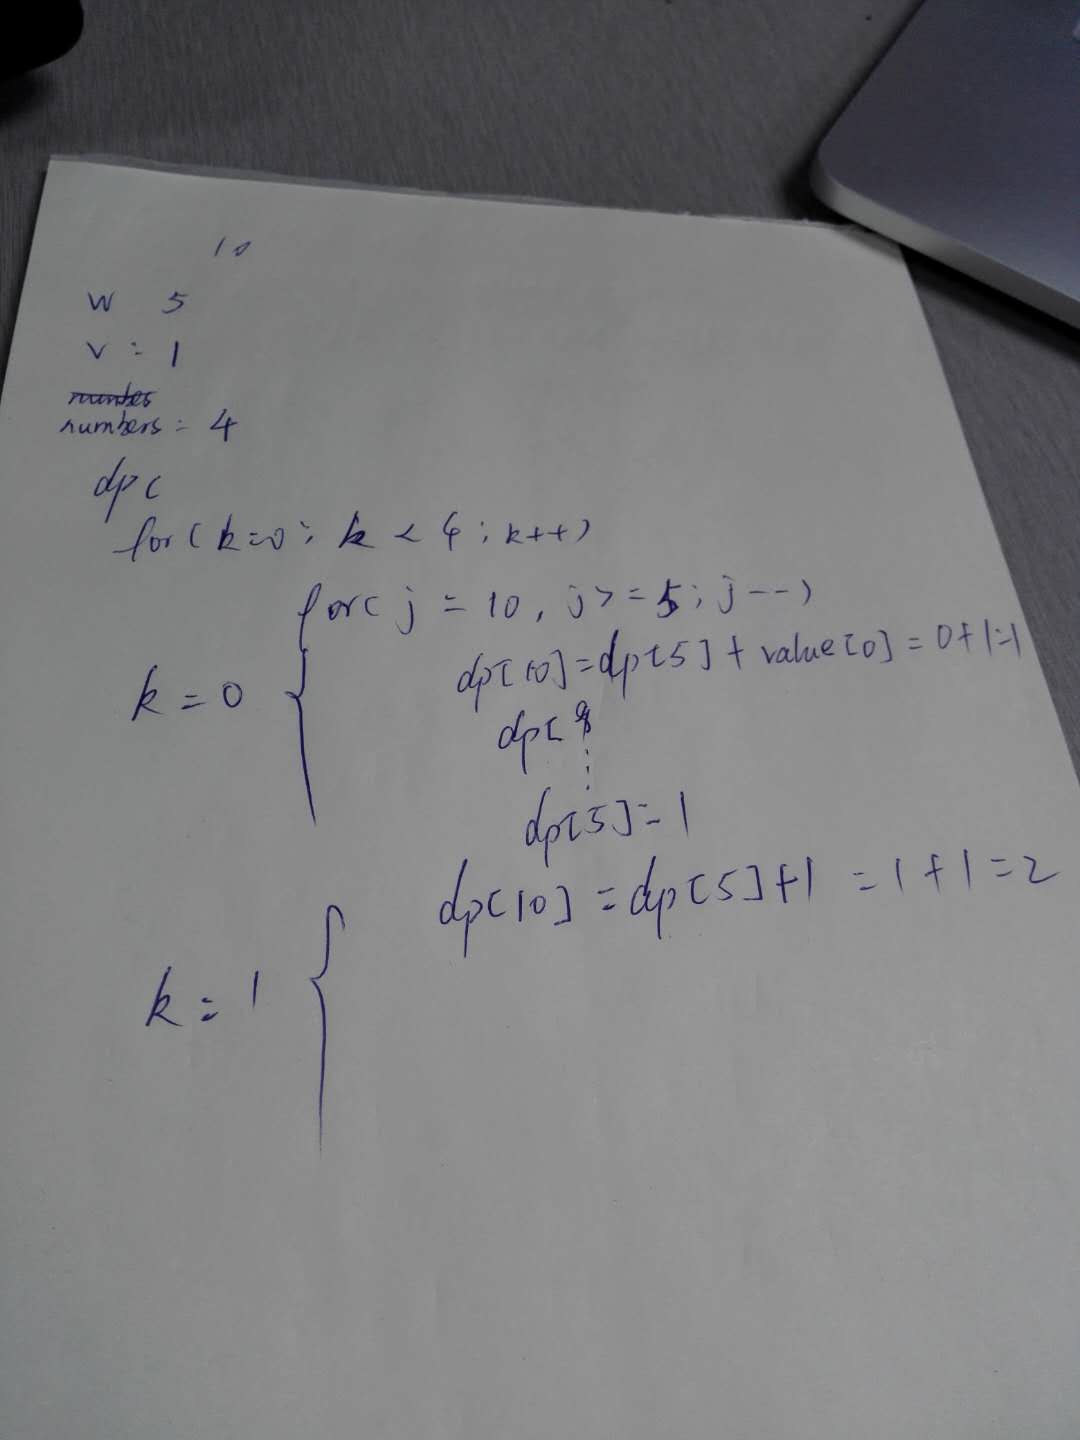 10
w 5
v = 1
numbers = 4
dp[
for(k=0; k < 4; k++)
for(j = 10, j>=5; j--)
k = 0
dp[10]=dp[5]+value[0]=0+1=1
dp[9
⋮
dp[5]=1
dp[10]=dp[5]+1 =1+1=2
k = 1